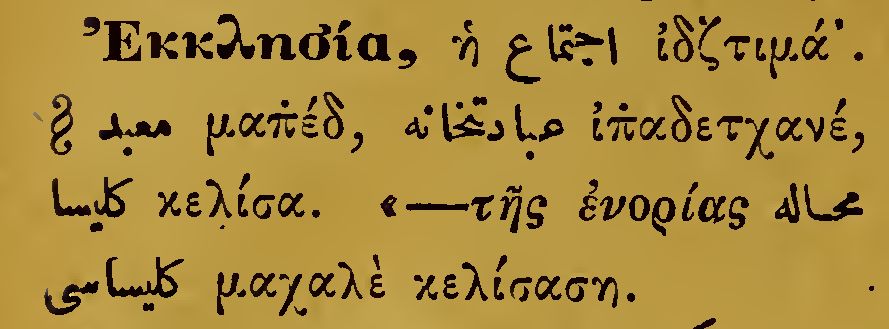 Ἐκκλησία, ἡ اجتماع ἰδζτιμά'.
§ معبد μαπ̇έδ, عبادتخانه ἰπ̇αδετχανέ,
كليسا κελίσα. «—τῆς ἐνορίας محاله
كليساسى μαχαλὲ κελίσαση.